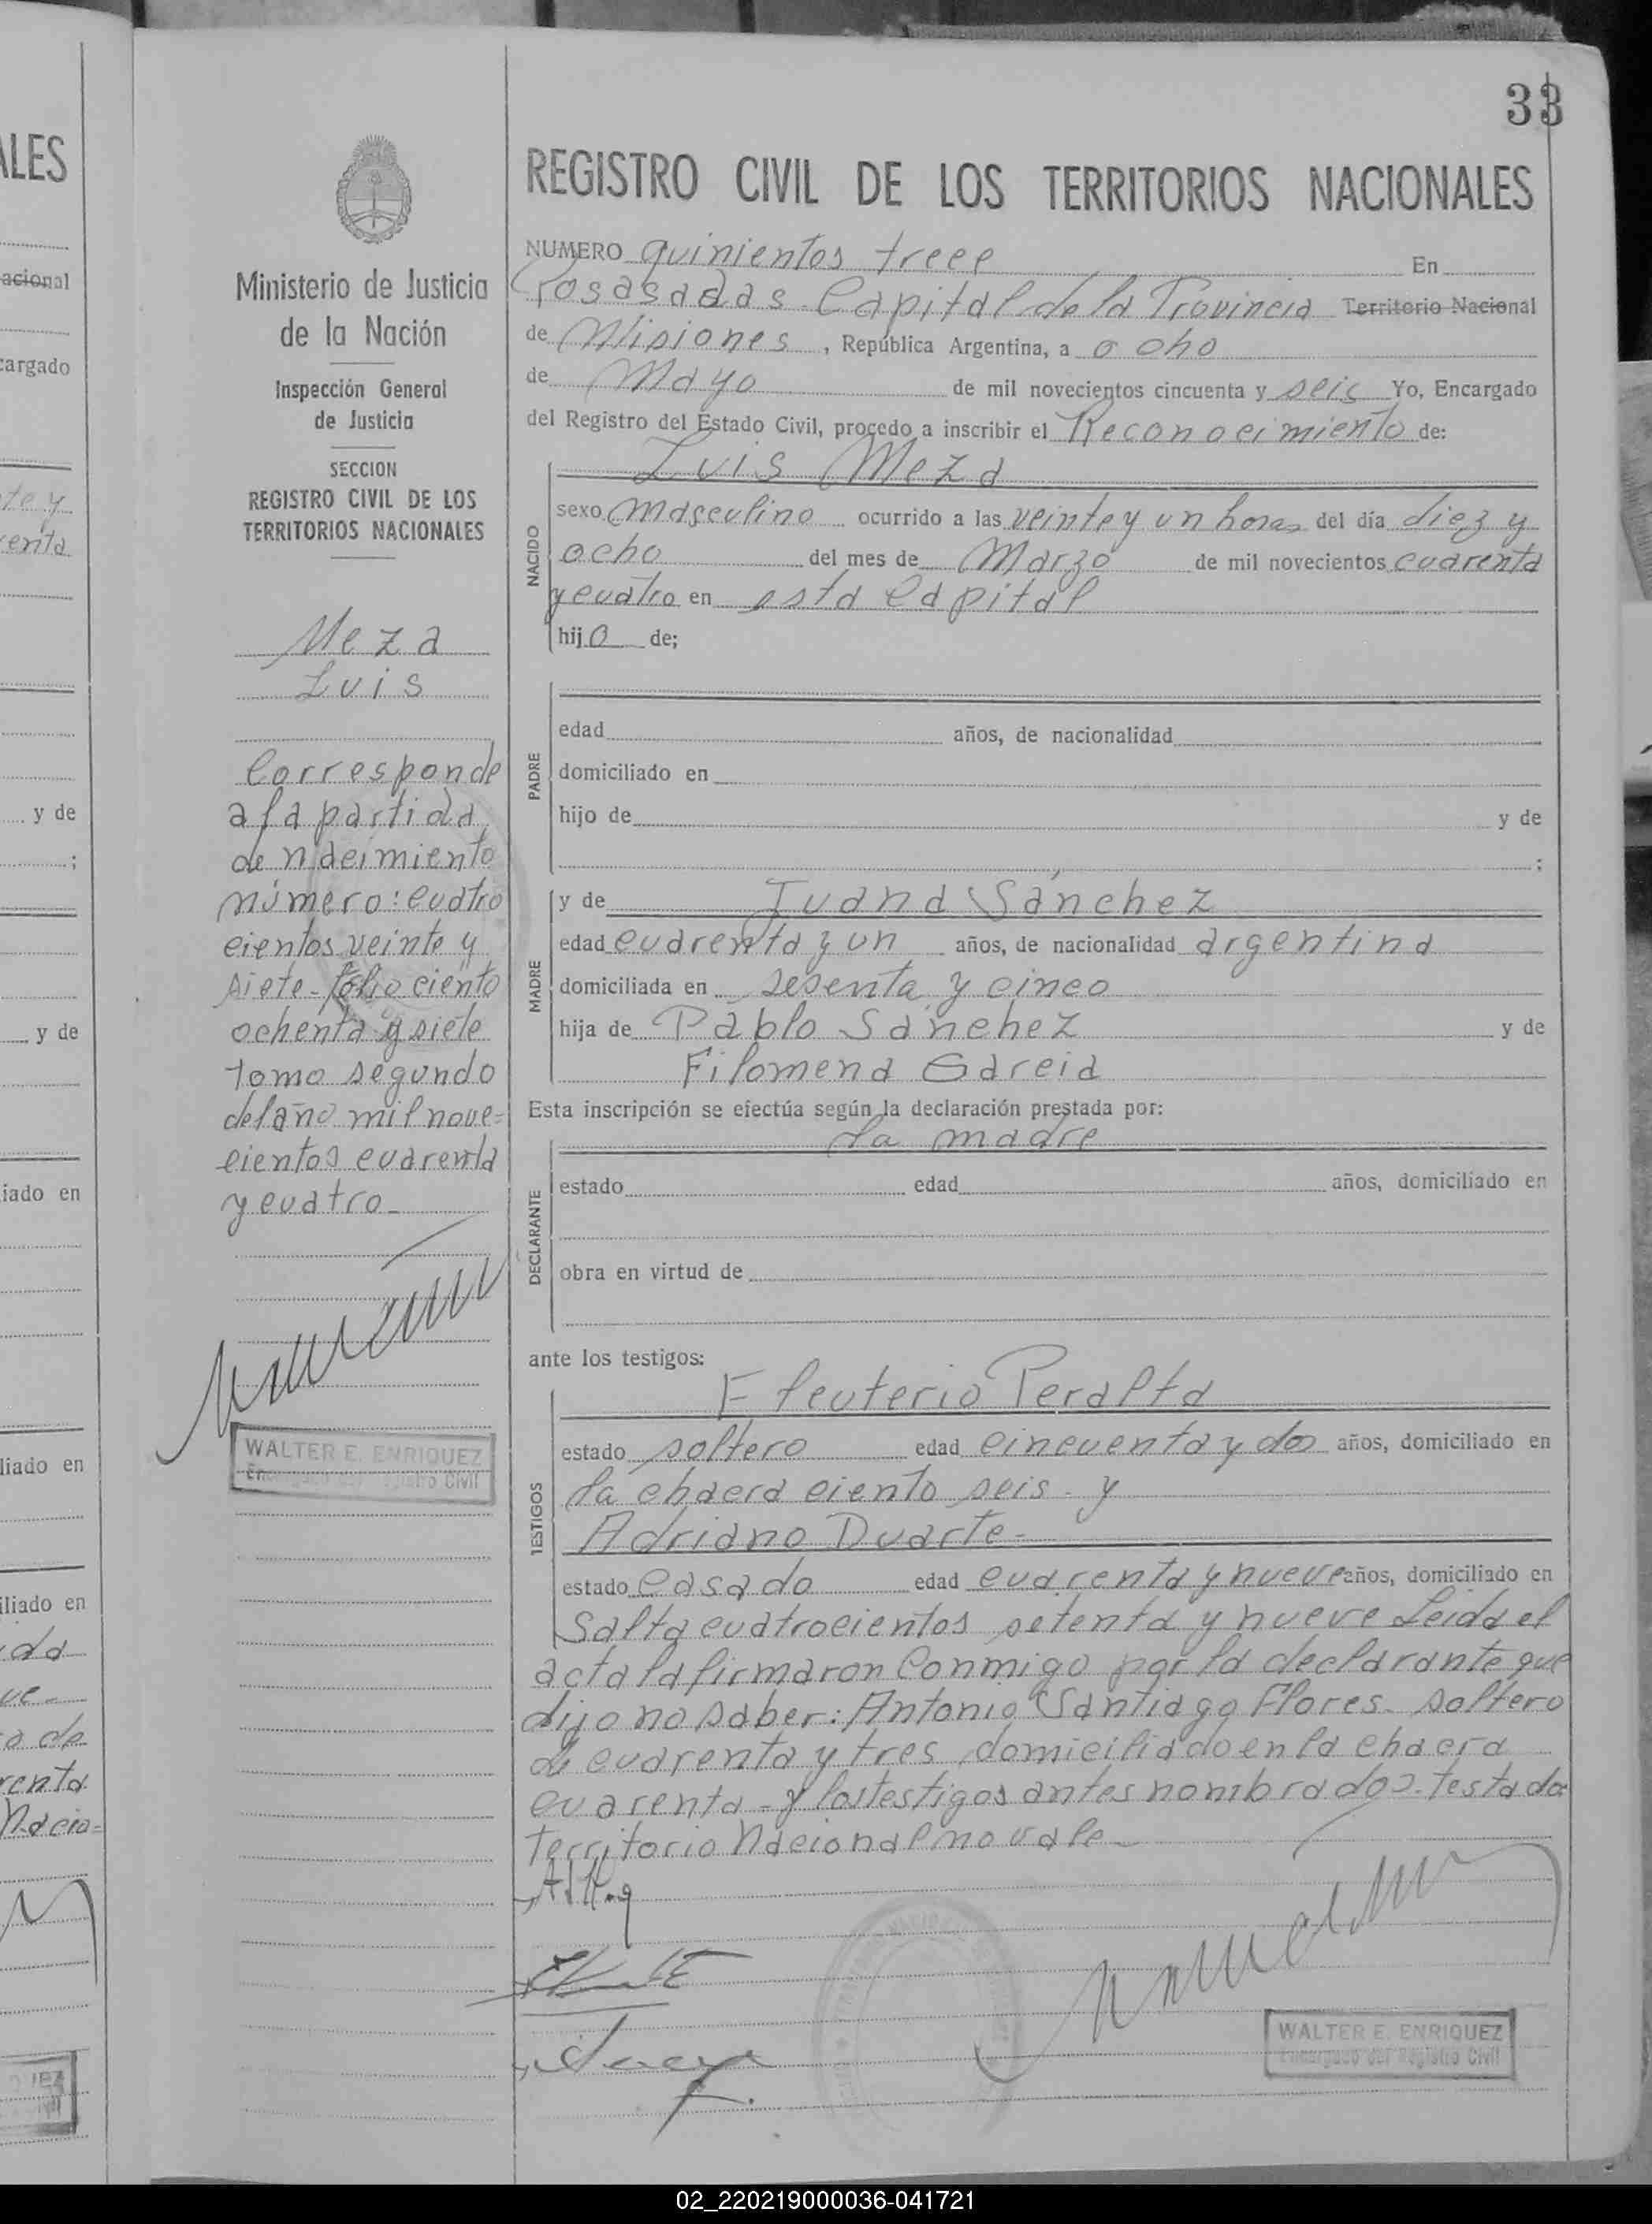 33
REGISTRO CIVIL DE LOS TERRITORIOS NACIONALES
NUMERO quinientos trece En
Posasadas Capital de la Provincia Territorio Nacional
de Misiones, República Argentina, a ocho
de Mayo de mil novecientos cincuenta y seis Yo, Encargado
del Registro del Estado Civil, procedo a inscribir el Reconocimiento de:
NACIDO
Luis Meza
sexo masculino ocurrido a las veinte y un horas del día diez y
ocho del mes de Marzo de mil novecientos cuarenta
y cuatro en esta Capital
hijo de;
PADRE
edad años, de nacionalidad
domiciliado en
hijo de y de
;
MADRE
y de Juana Sánchez
edad cuarenta y un años, de nacionalidad argentina
domiciliada en sesenta y cinco
hija de Pablo Sánchez y de
Filomena Garcia
Esta inscripción se efectúa según la declaración prestada por:
DECLARANTE
la madre
estado edad años, domiciliado en
obra en virtud de
ante los testigos:
TESTIGOS
Eleuterio Peralta
estado soltero edad cincuenta y dos años, domiciliado en
la chacra ciento seis - y
Adriano Duarte -
estado casado edad cuarenta y nueve años, domiciliado en
Salta cuatrocientos setenta y nueve Leida el
acta la firmaron Conmigo por la declarante que
dijo no saber: Antonio Santiago Flores - soltero
de cuarenta y tres, domiciliado en la chacra
cuarenta - y los testigos antes nombrados - testado
Territorio Nacional no vale -
WALTER E. ENRIQUEZ
Encargado del Registro Civil
Ministerio de Justicia
de la Nación
Inspección General
de Justicia
SECCION
REGISTRO CIVIL DE LOS
TERRITORIOS NACIONALES
Meza
Luis
Corresponde
a la partida
de nacimiento
número: cuatro
cientos veinte y
siete - folio ciento
ochenta y siete
tomo segundo
del año mil nove=
cientos cuarenta
y cuatro -
WALTER E. ENRIQUEZ
Encargado del Registro Civil
ALES
acional
cargado
te y
renta
y de
;
y de
iado en
liado en
iliado en
da
ve -
o de
renta
Nacio=
02_220219000036-041721